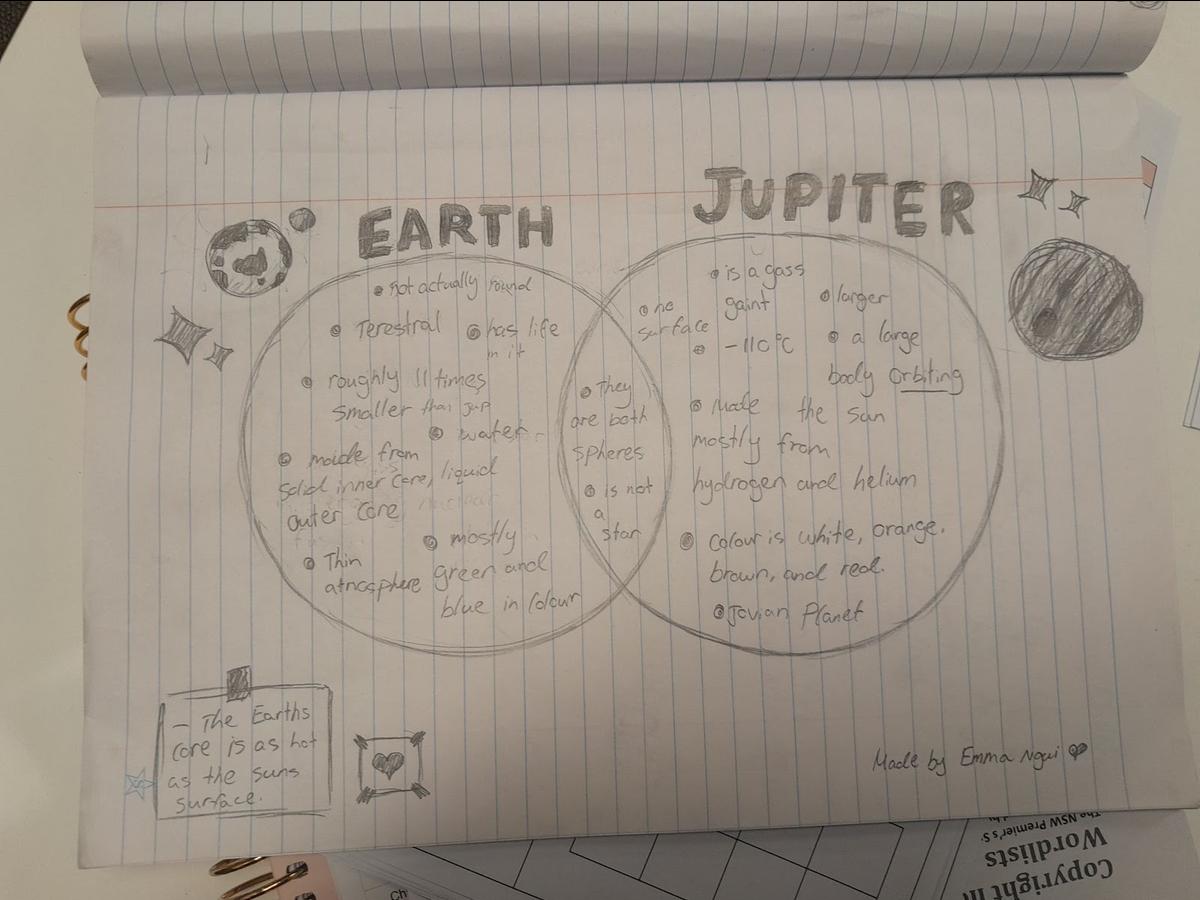 EARTH
JUPITER
not actually round
Terestral
has life
in it
roughly 11 times
smaller than jup
water
maide from
solid inner core, liquid
outer core
mostly
green and
blue in Colour
Thin
atmosphere
They
are both
spheres
is not
a
star
is a gass
gaint
no
surface
larger
-110°C
a large
body orbiting
the sun
Made
mostly from
hydrogen and helium
colour is white, orange,
brown, and red.
Jovian Planet
- The Earths
core is as hot
as the suns
surface.
Made by Emma Ngui
Ch
Copyright in
Wordlists
The NSW Premier's S